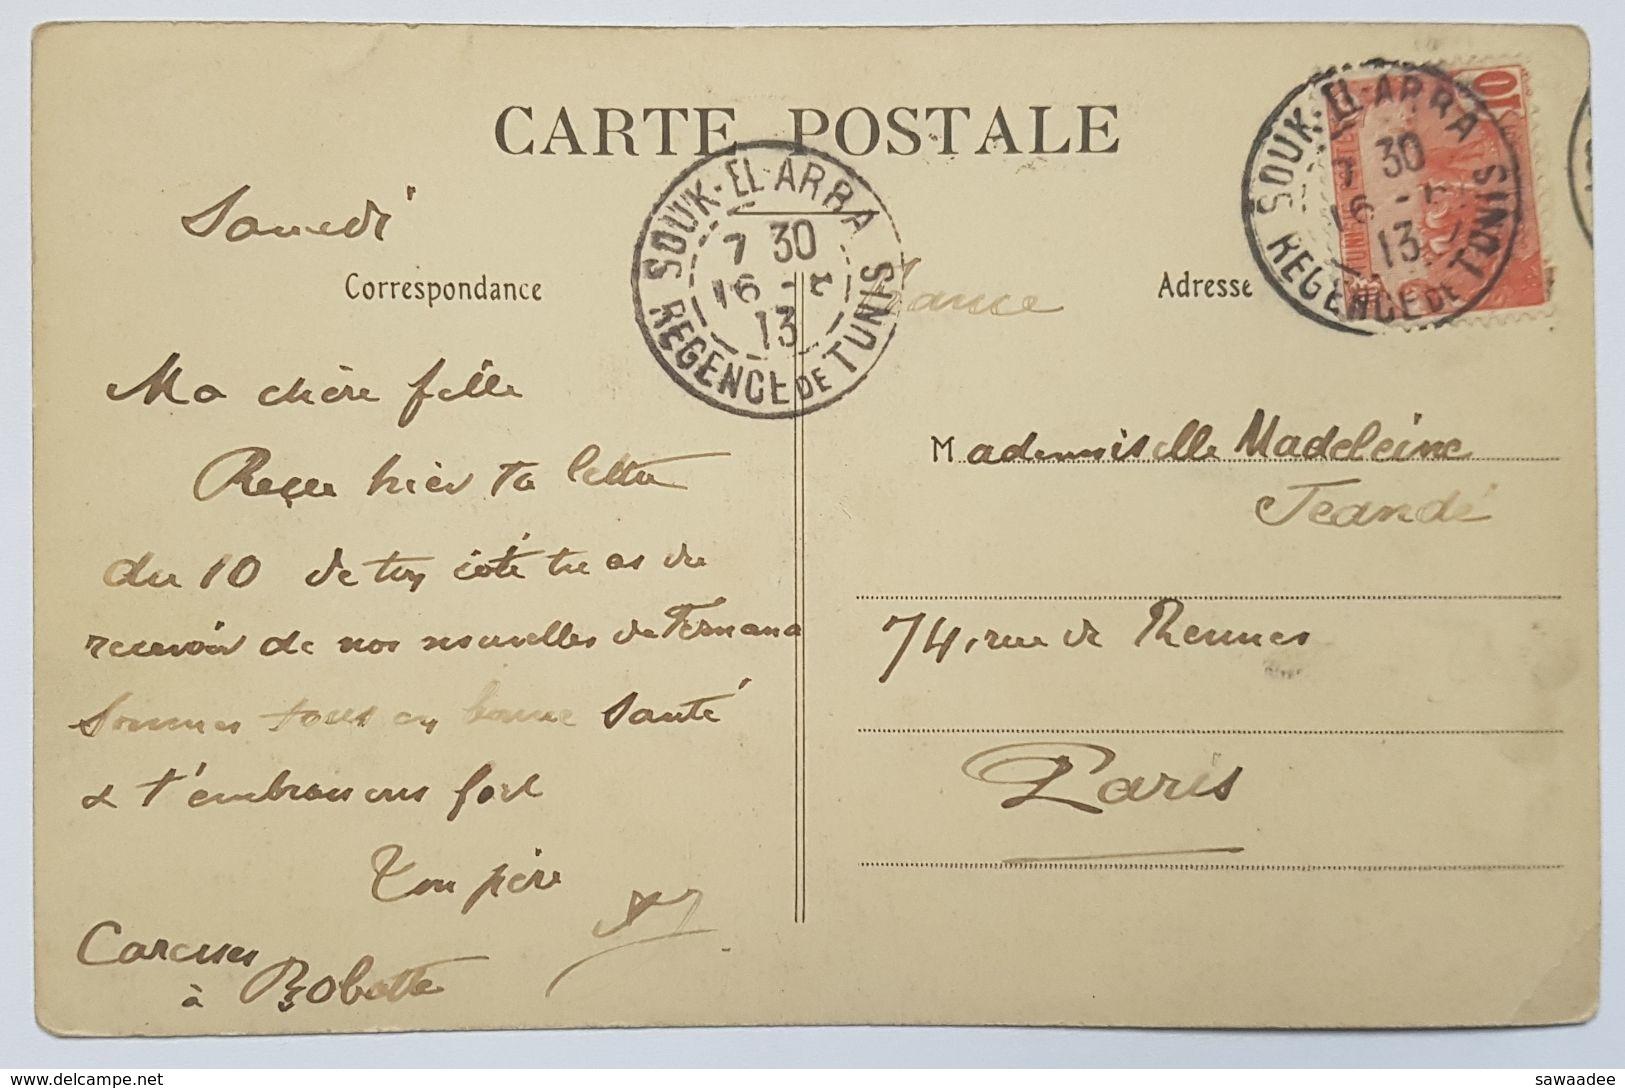 CARTE POSTALE
SOUK-EL-ARRA
7 30
16 -5
13
REGENCE DE TUNIS
SOUK-EL-ARRA
7 30
16 -5
13
REGENCE DE TUNIS
10
Samedi
Correspondance
Ma chère fille
Reçu hier ta lettre
du 10 de ton côté tu as du
recevoir de nos nouvelles de Fernana
Sommes tous en bonne santé
& t'embrassons fort
Ton père
Caresses
à Bobotte
France
Adresse
Mademoiselle Madeleine
Jeandé
74, rue de Rennes
Paris
www.delcampe.net
sawaadee